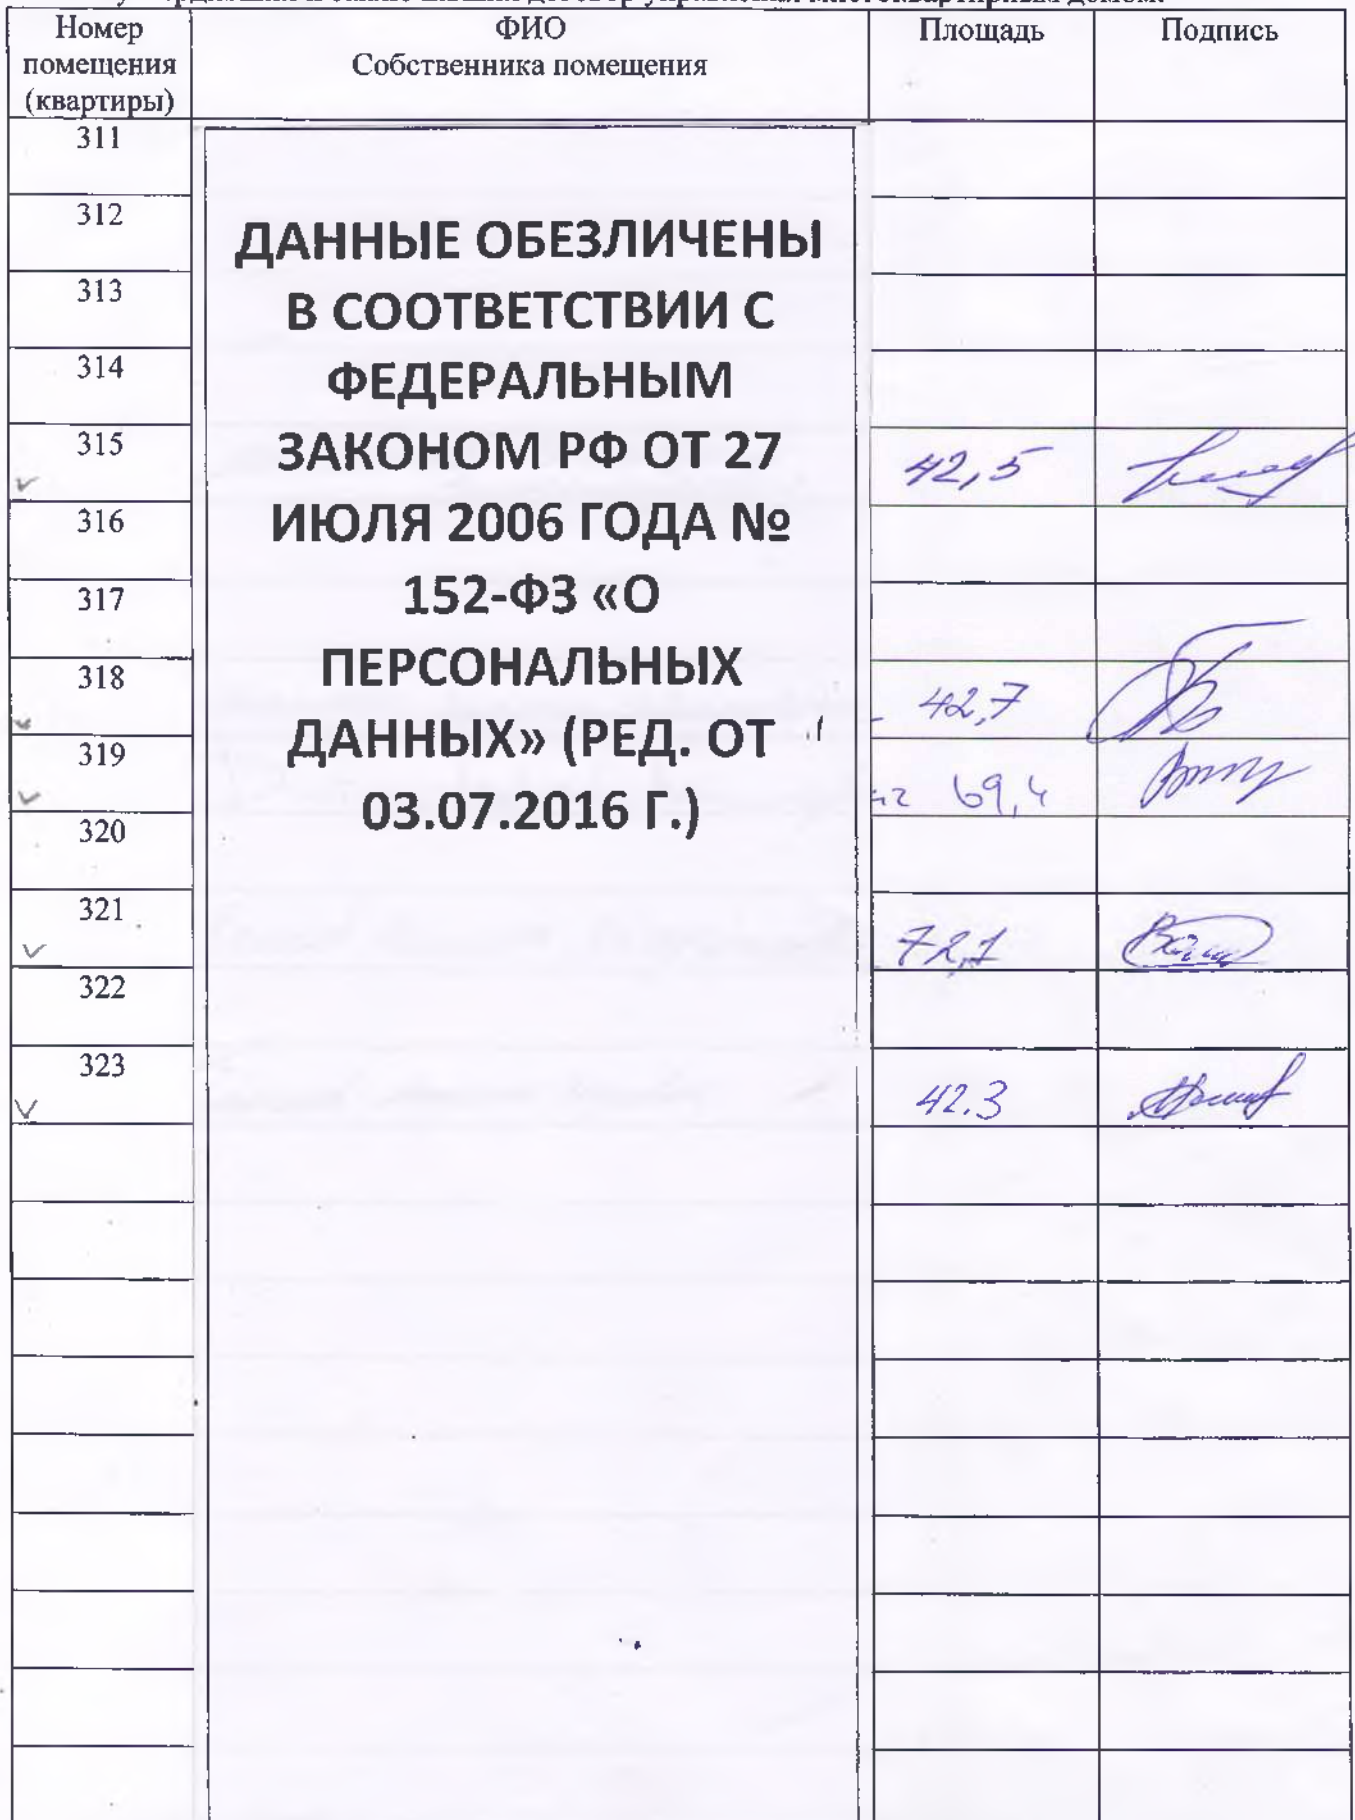 договор управления многоквартирным домом.
Номер помещения (квартиры) ФИО Собственника помещения Площадь Подпись
311
312
313
314
315 42,5
316
317
318 42,7
319 69,4
320
321 72,1
322
323 42.3
ДАННЫЕ ОБЕЗЛИЧЕНЫ
В СООТВЕТСТВИИ С
ФЕДЕРАЛЬНЫМ
ЗАКОНОМ РФ ОТ 27
ИЮЛЯ 2006 ГОДА №
152-ФЗ «О
ПЕРСОНАЛЬНЫХ
ДАННЫХ» (РЕД. ОТ
03.07.2016 Г.)